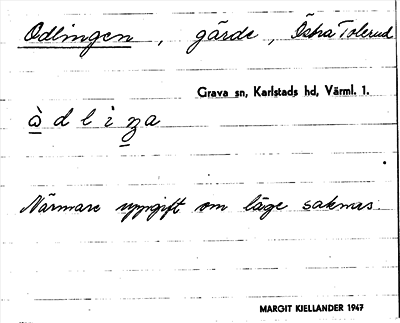 Odlingen, gärde, Östra Tolerud
Grava sn, Karlstads hd, Värml. l.
àdliza
Närmare uppgift om läge saknas.
MARGIT KJELLANDER 1947